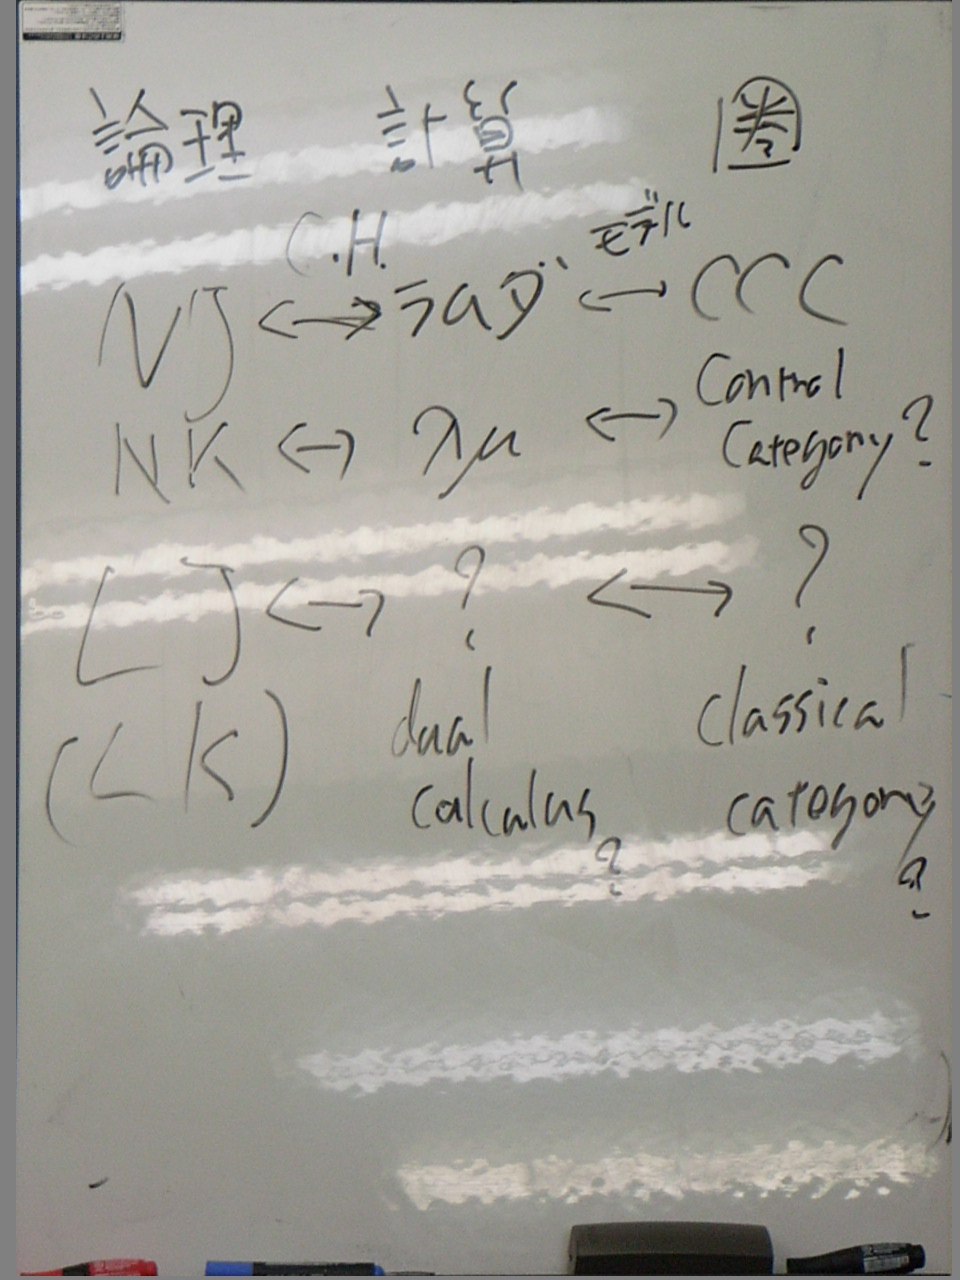 論理 計算 圏
C.H. モデル
NJ ↔ ラムダ ↔ CCC
NK ↔ λμ ↔ Control
Category?
LJ ↔ ? ↔ ?
(LK) dual classical
calculus category
? ?